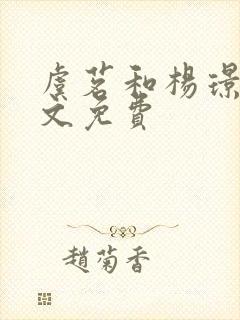 虞茗和楊璟
文免費
趙菊香